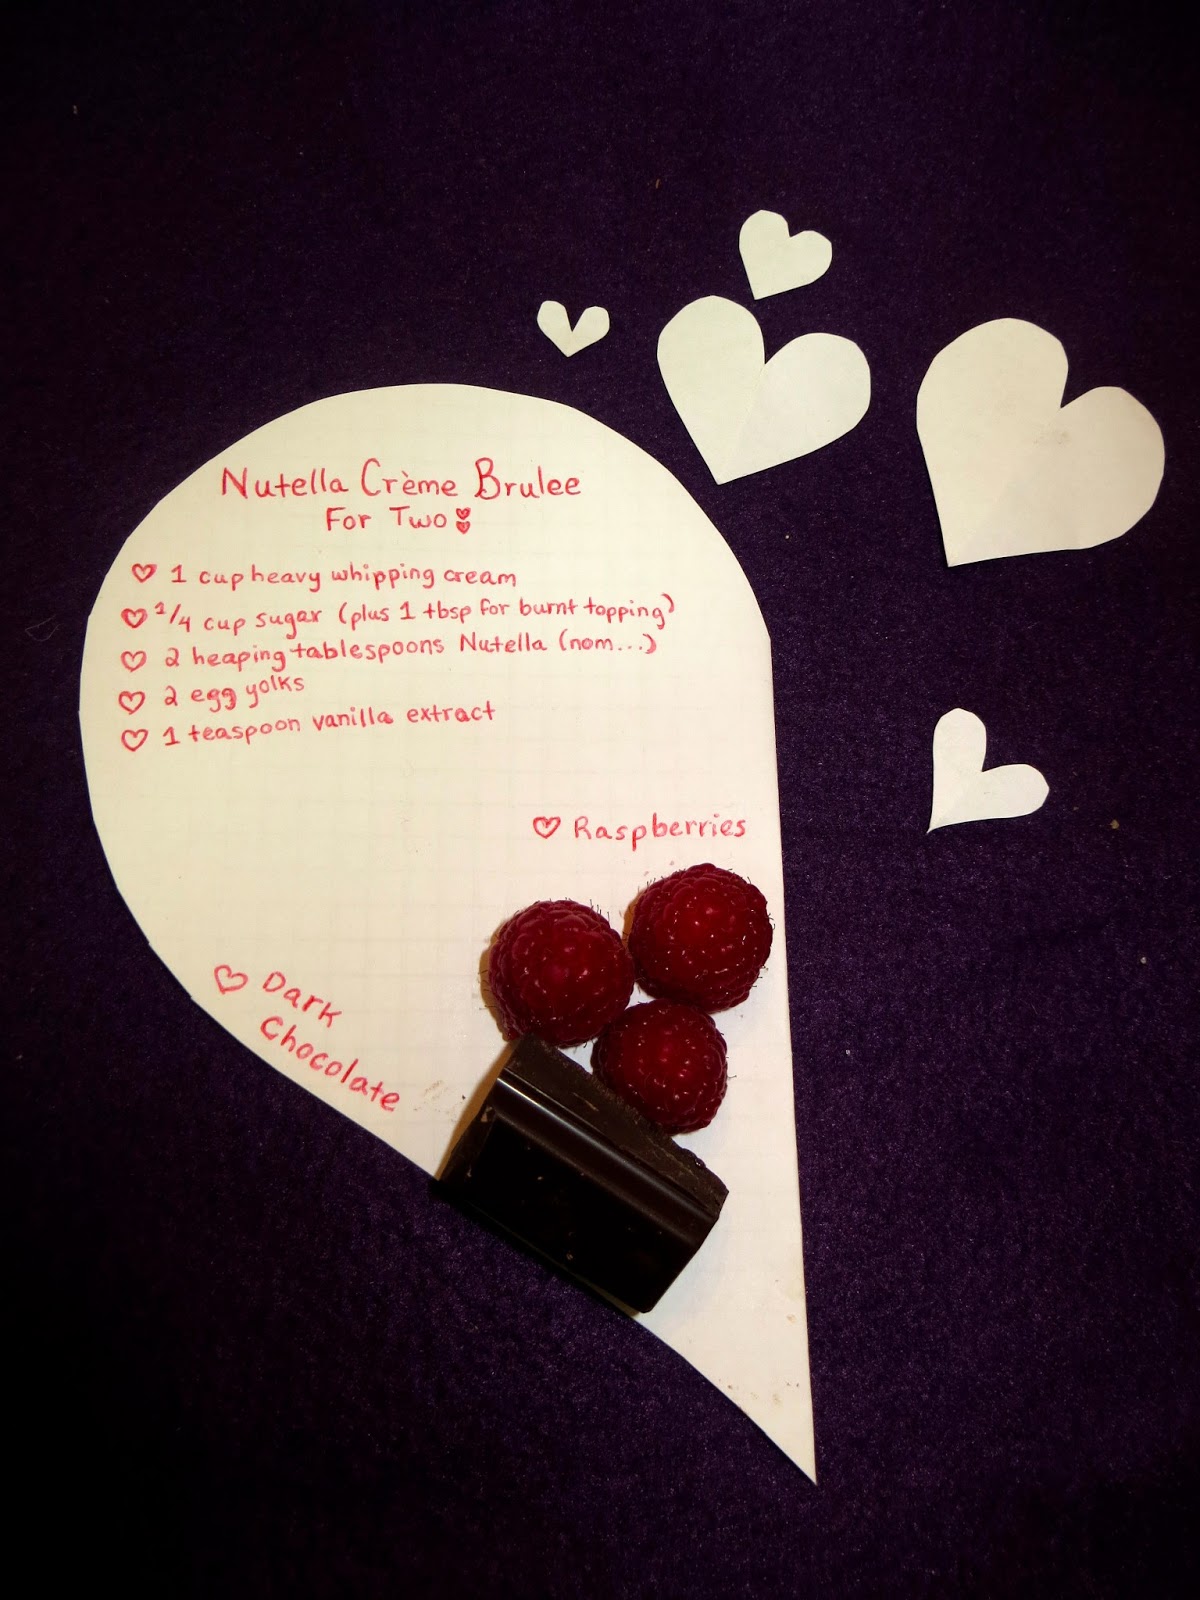 Nutella Crème Brulee
For Two
1 cup heavy whipping cream
1/4 cup sugar (plus 1 tbsp for burnt topping)
2 heaping tablespoons Nutella (nom...)
2 egg yolks
1 teaspoon vanilla extract
Raspberries
Dark
Chocolate